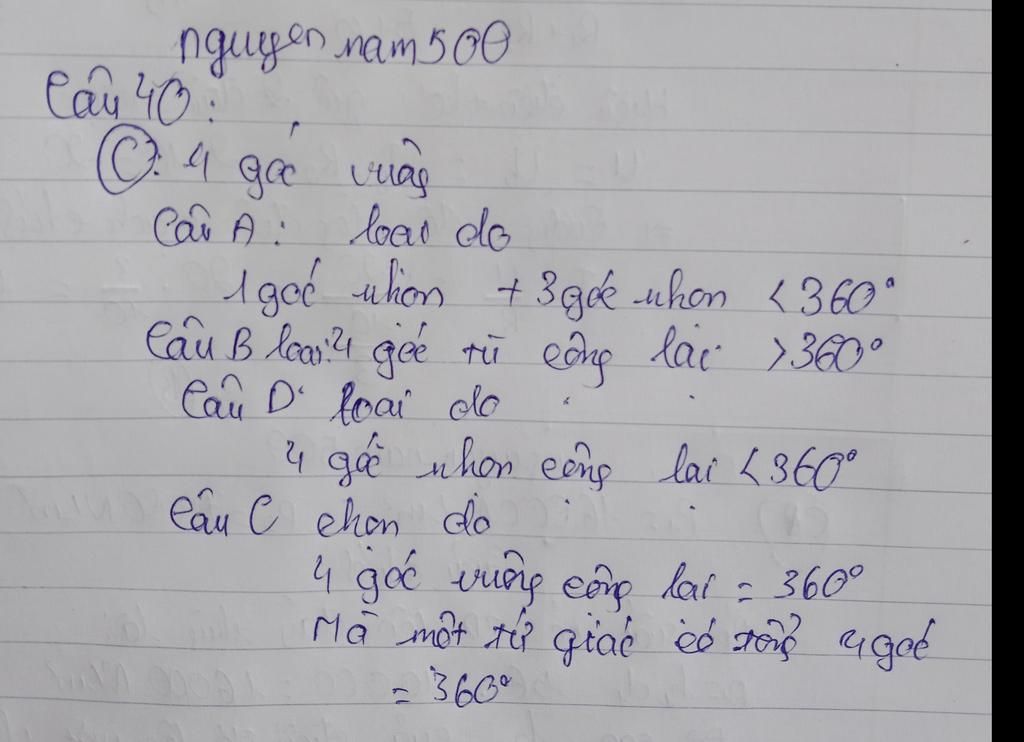 nguyen nam 500
Câu 40:
C: 4 góc vuông
Câu A: loại do
1 góc nhọn + 3 góc nhọn < 360°
Câu B loại: 4 góc tù cộng lại > 360°
Câu D: loại do
4 góc nhọn cộng lại < 360°
Câu C chọn do
4 góc vuông cộng lại = 360°
Mà một tứ giác có tổng 4 góc
= 360°